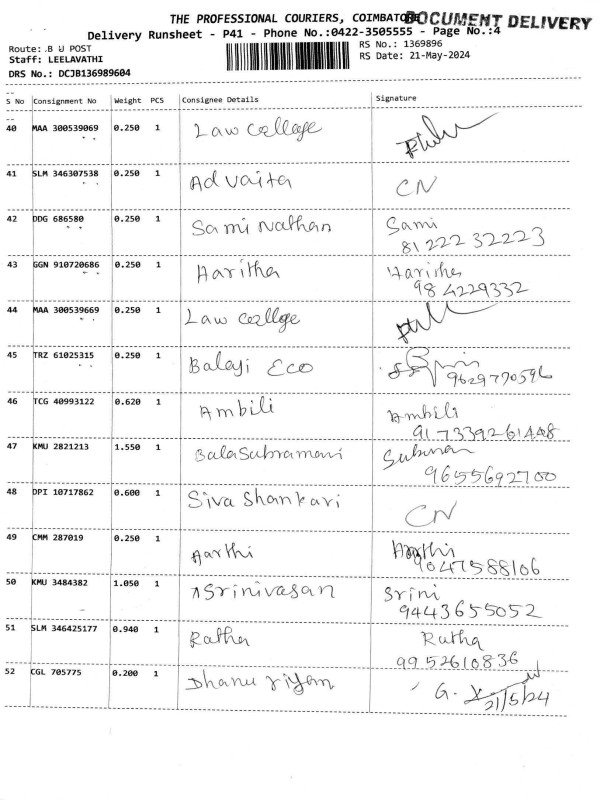 THE PROFESSIONAL COURIERS, COIMBATORE
DOCUMENT DELIVERY
Delivery Runsheet - P41 - Phone No.:0422-3505555 - Page No.:4
Route: B U POST
RS No.: 1369896
Staff: LEELAVATHI
RS Date: 21-May-2024
DRS No.: DCJB136989604
S No Consignment No Weight PCS Consignee Details Signature
40 MAA 300539069 0.250 1 Law College
41 SLM 346307538 0.250 1 Advaita CN
42 DDG 686580 0.250 1 Saminathan Sami
81222 32223
43 GGN 910720686 0.250 1 Haritha Haritha
984229332
44 MAA 300539669 0.250 1 Law College
45 TRZ 61025315 0.250 1 Balaji Eco
9629770596
46 TCG 40993122 0.620 1 Ambili Ambili
917339261448
47 KMU 2821213 1.550 1 BalaSubramani
9655692700
48 DPI 10717862 0.600 1 Siva Shankari CN
49 CMM 287019 0.250 1 Aarthi Aarthi
9047588106
50 KMU 3484382 1.050 1 Srinivasan Srini
9443655052
51 SLM 346425177 0.940 1 Ratha Ratha
9952610836
52 CGL 705775 0.200 1 Dhanu riyam G.
21/5/24